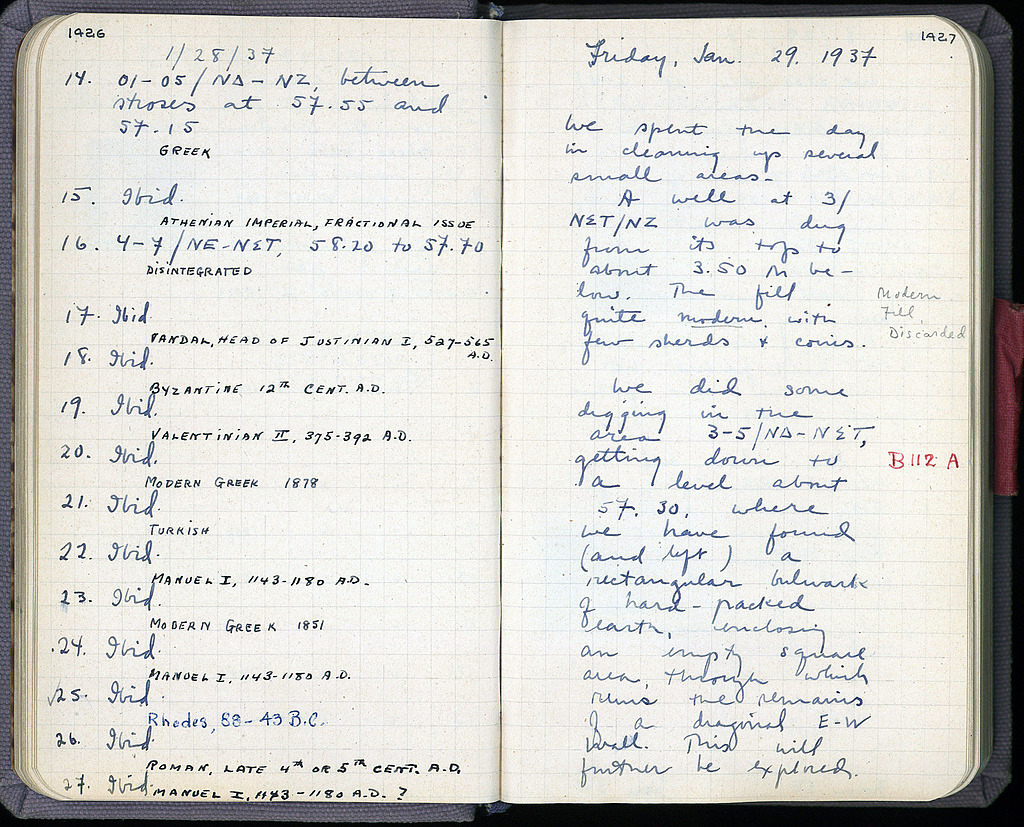 1426
1/28/37
14. 01-05/ΝΔ-ΝΖ, between
stroses at 57.55 and
57.15
GREEK
15. Ibid.
ATHENIAN IMPERIAL, FRACTIONAL ISSUE
16. 4-7/ΝΕ-ΝΣΤ, 58.20 to 57.70
DISINTEGRATED
17. Ibid
VANDAL, HEAD OF JUSTINIAN I, 527-565
A.D.
18. Ibid.
BYZANTINE 12TH CENT. A.D.
19. Ibid.
VALENTINIAN II, 375-392 A.D.
20. Ibid.
MODERN GREEK 1878
21. Ibid.
TURKISH
22. Ibid.
MANUEL I, 1143-1180 A.D.
23. Ibid.
MODERN GREEK 1851
24. Ibid.
MANUEL I, 1143-1180 A.D.
√25. Ibid
Rhodes, 88-43 B.C.
26. Ibid
ROMAN, LATE 4th OR 5th CENT. A.D.
27. Ibid.
MANUEL I, 1143-1180 A.D. ?
1427
Friday, Jan. 29. 1937
We spent the day
in cleaning up several
small areas-
A well at 3/
ΝΣΤ/ΝΖ was dug
from its top to
about 3.50 M be-
low. The fill
quite modern, with
few sherds & coins.
Modern
Fill
Discarded
We did some
digging in the
area 3-5/ΝΔ-ΝΣΤ,
getting down to
B112 A
a level about
57.30, where
we have found
(and left) a
rectangular bulwark
of hard-packed
earth, enclosing
an empty square
area, through which
runs the remains
of a diagonal E-W
wall. This will
further be explored.